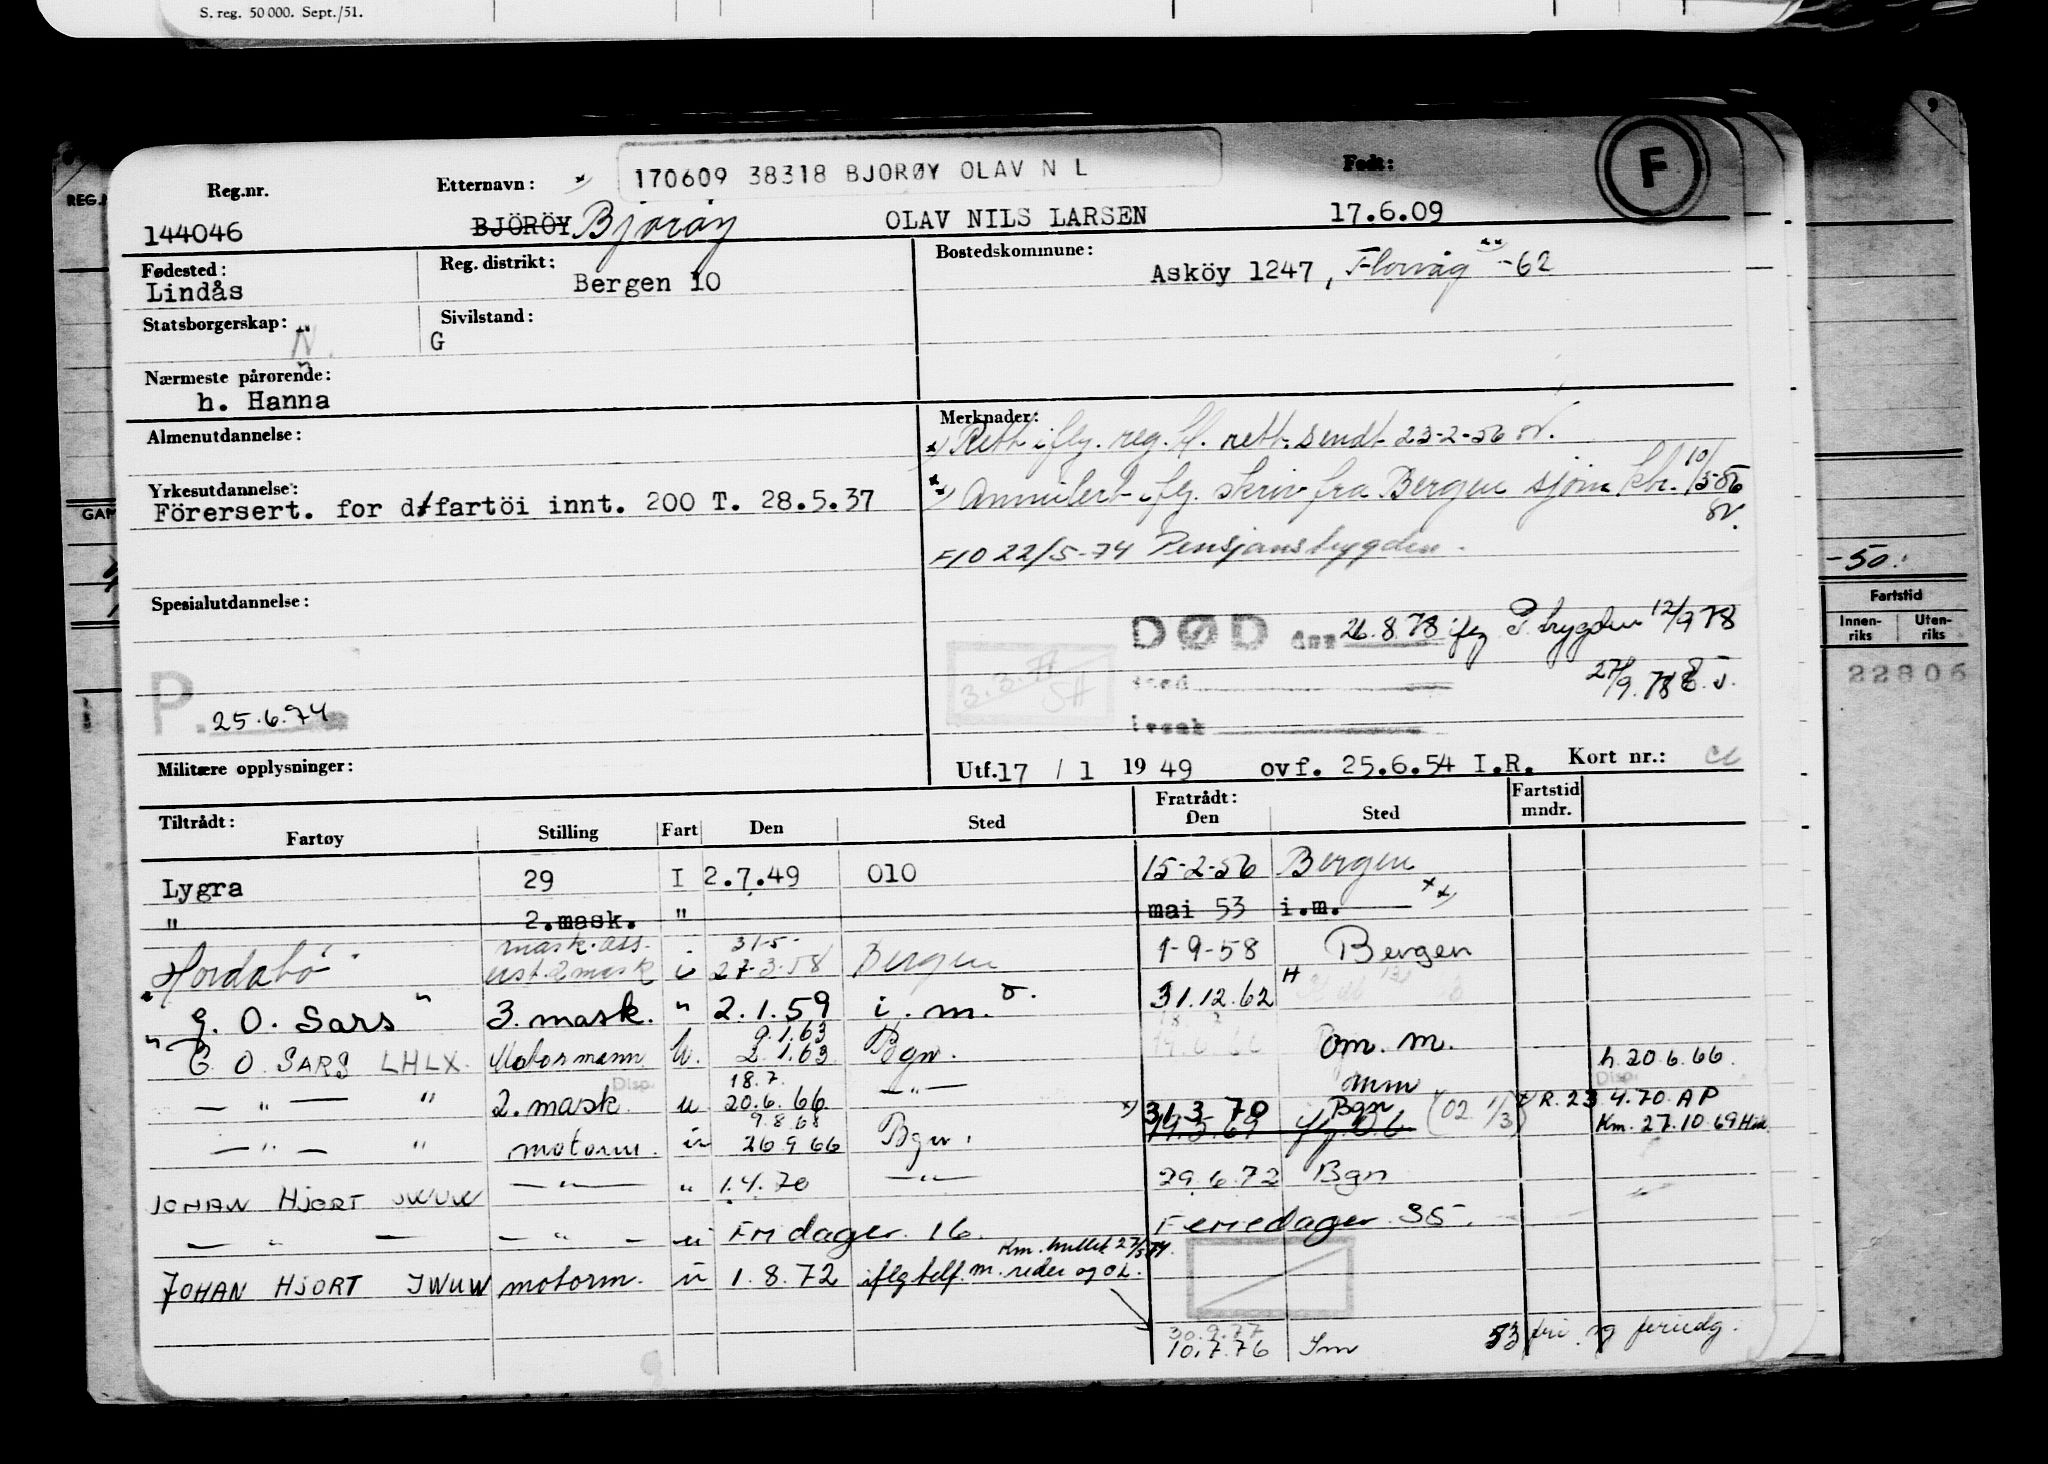 S. reg. 50 000. Sept./51.
Reg.nr. Etternavn: 170609 38318 BJORØY OLAV N L Født: F
144046 BJÖRÖY Bjorøy OLAV NILS LARSEN 17.6.09
Fødested: Reg. distrikt: Bostedskommune:
Lindås Bergen 10 Asköy 1247, Florvåg -62
Statsborgerskap: N. Sivilstand:
G
Nærmeste pårørende:
h. Hanna
Almenutdannelse: Merknader:
x) Rett iflg. reg. bl. rett. sendt 23-2-56
Yrkesutdannelse:
Förersert. for d/fartöi innt. 200 T. 28.5.37
Annulert iflg. skriv fra Bergen sjöm.ktr. 10/5-56
F/O 22/5-74 Pensjonstrygden.
Spesialutdannelse:
DØD den 26.8.78 iflg P.trygden 12/9 78
sted 27/9.78
P. 25.6.74
årsak
Militære opplysninger: Utf. 17 / 1 19 49 ovf. 25.6.54 I.R. Kort nr.:
Tiltrådt: Fratrådt: Fartstid
Fartøy Stilling Fart Den Sted Den Sted mndr.
Lygra 29 I 2.7.49 010 15-2-56 Bergen
" 2.mask. " mai 53 i.m.
mask.ass. 31-5-
Hordabö 2 mask i 27-3-58 Bergen 1-9-58 Bergen
" G. O. Sars " 3. mask. " 2.1.59 i. m. 31.12.62
9.1.63
G. O. SARS LHLX. Motormann 2.1.63 Bgn. om. m. h. 20.6.66.
18.7.
— " — " 2. mask u 20.6.66 — " — mm
31.3 70 Bgn R. 23 4.70. AP
9.8.68
— " — " motorm. 26 9 66 Bgn. Km. 27.10.69
JOHAN HJORT JWUW — " — " 1.4.70 — " — 29.6.72 Bgn
— " — — " — Fridager. 16. Feriedager 35.
Km. 27/5 74.
JOHAN HJORT JWUW motorm. 1.8.72 iflg telf. m. reder og OL.
30.9.77
10.7.76 Sm 53 fri og feriedg.
-50.
Fartstid
Innen-
riks
Uten-
riks
22806